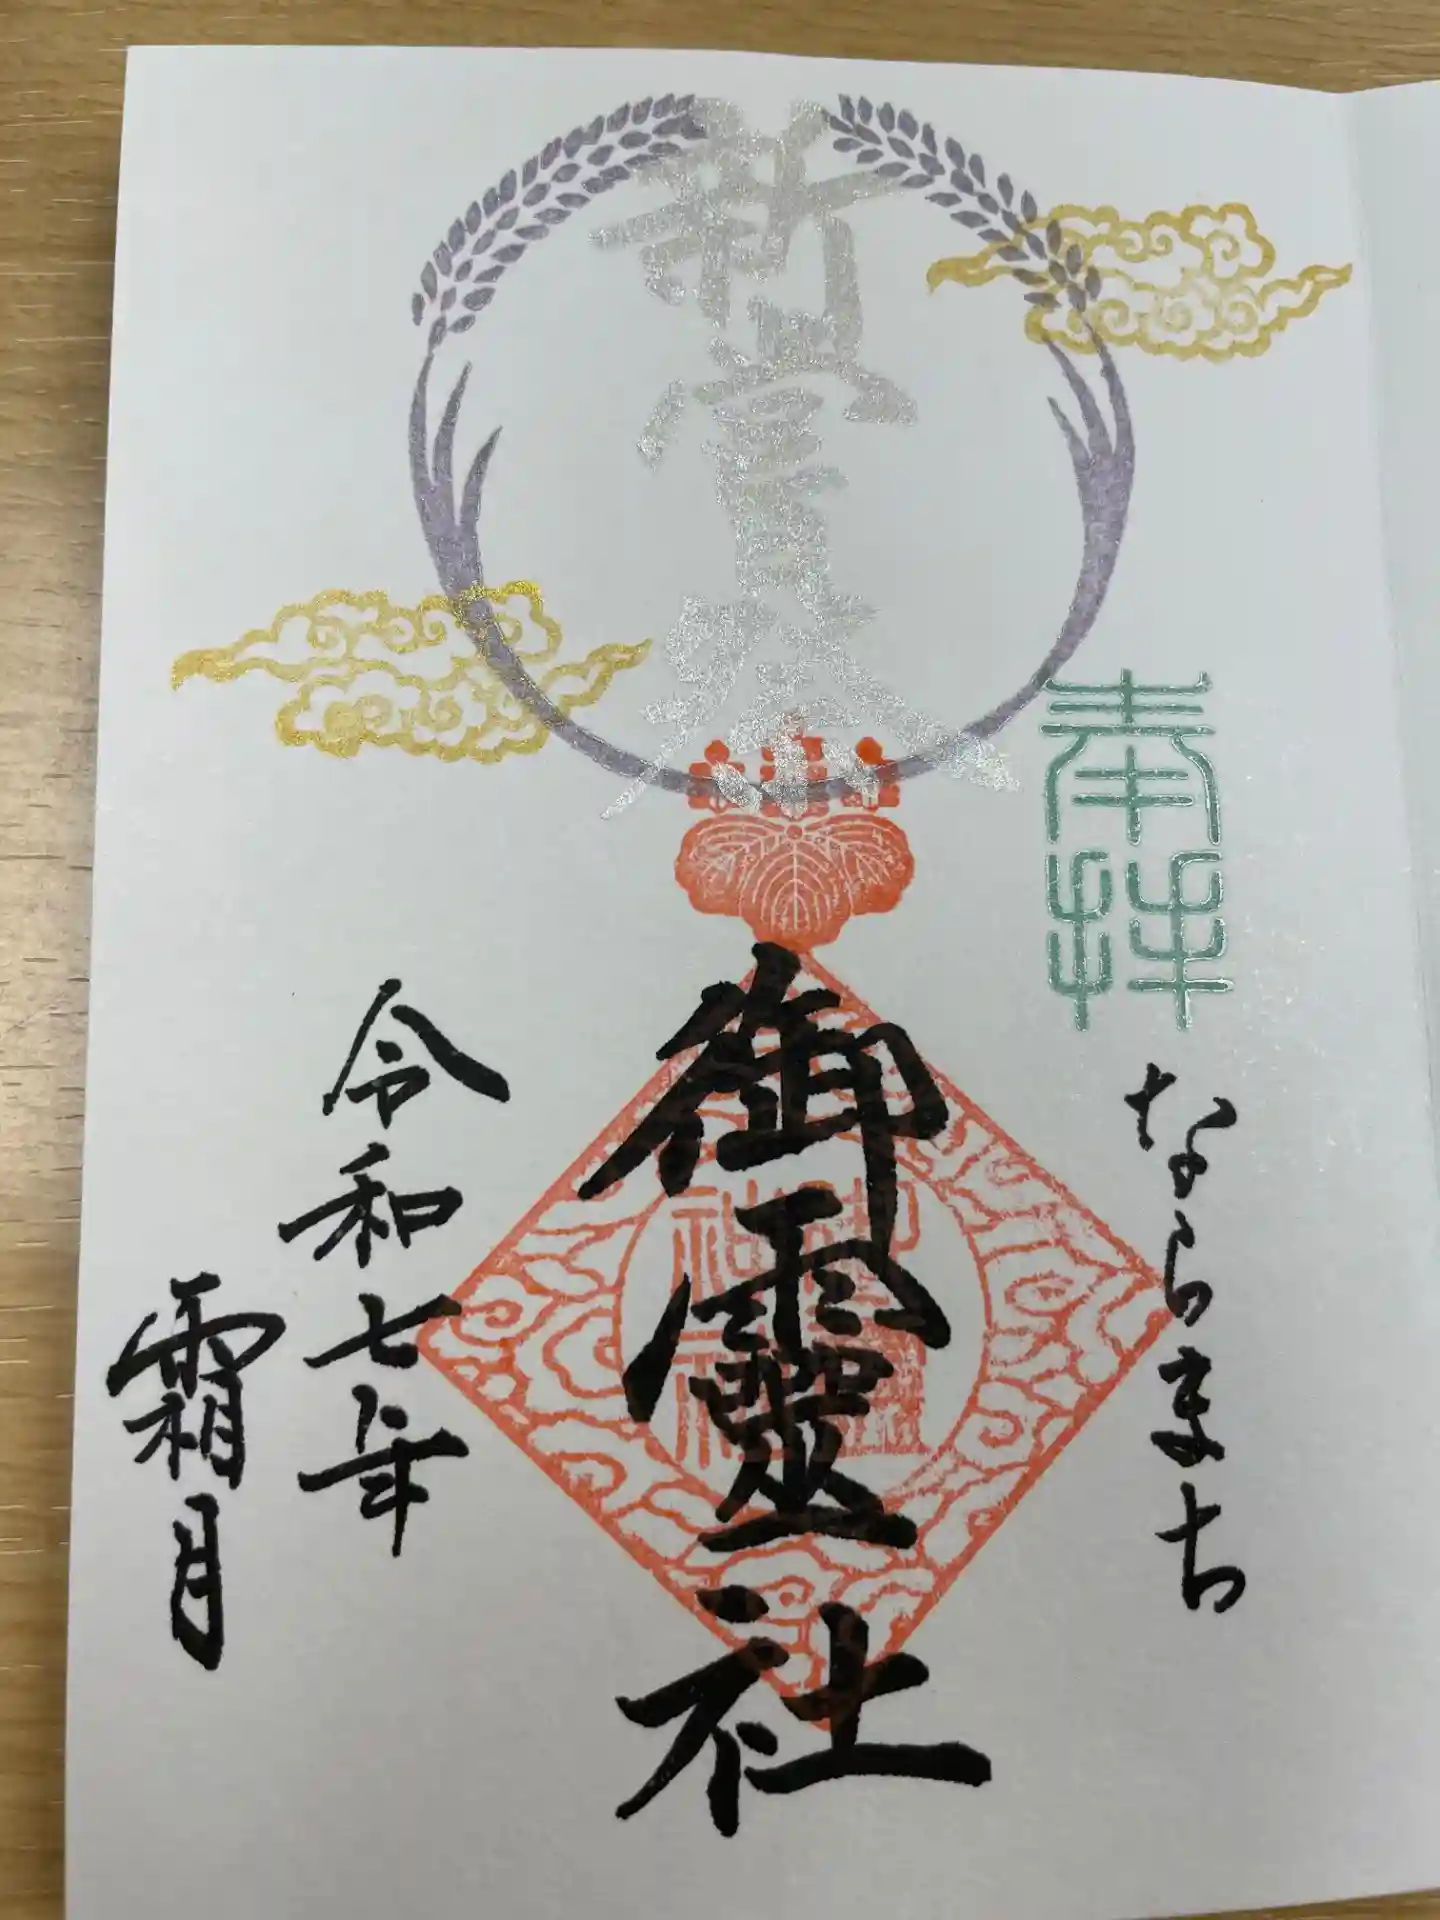 奉拝
ならまち
新嘗祭
御霊社
令和七年
霜月